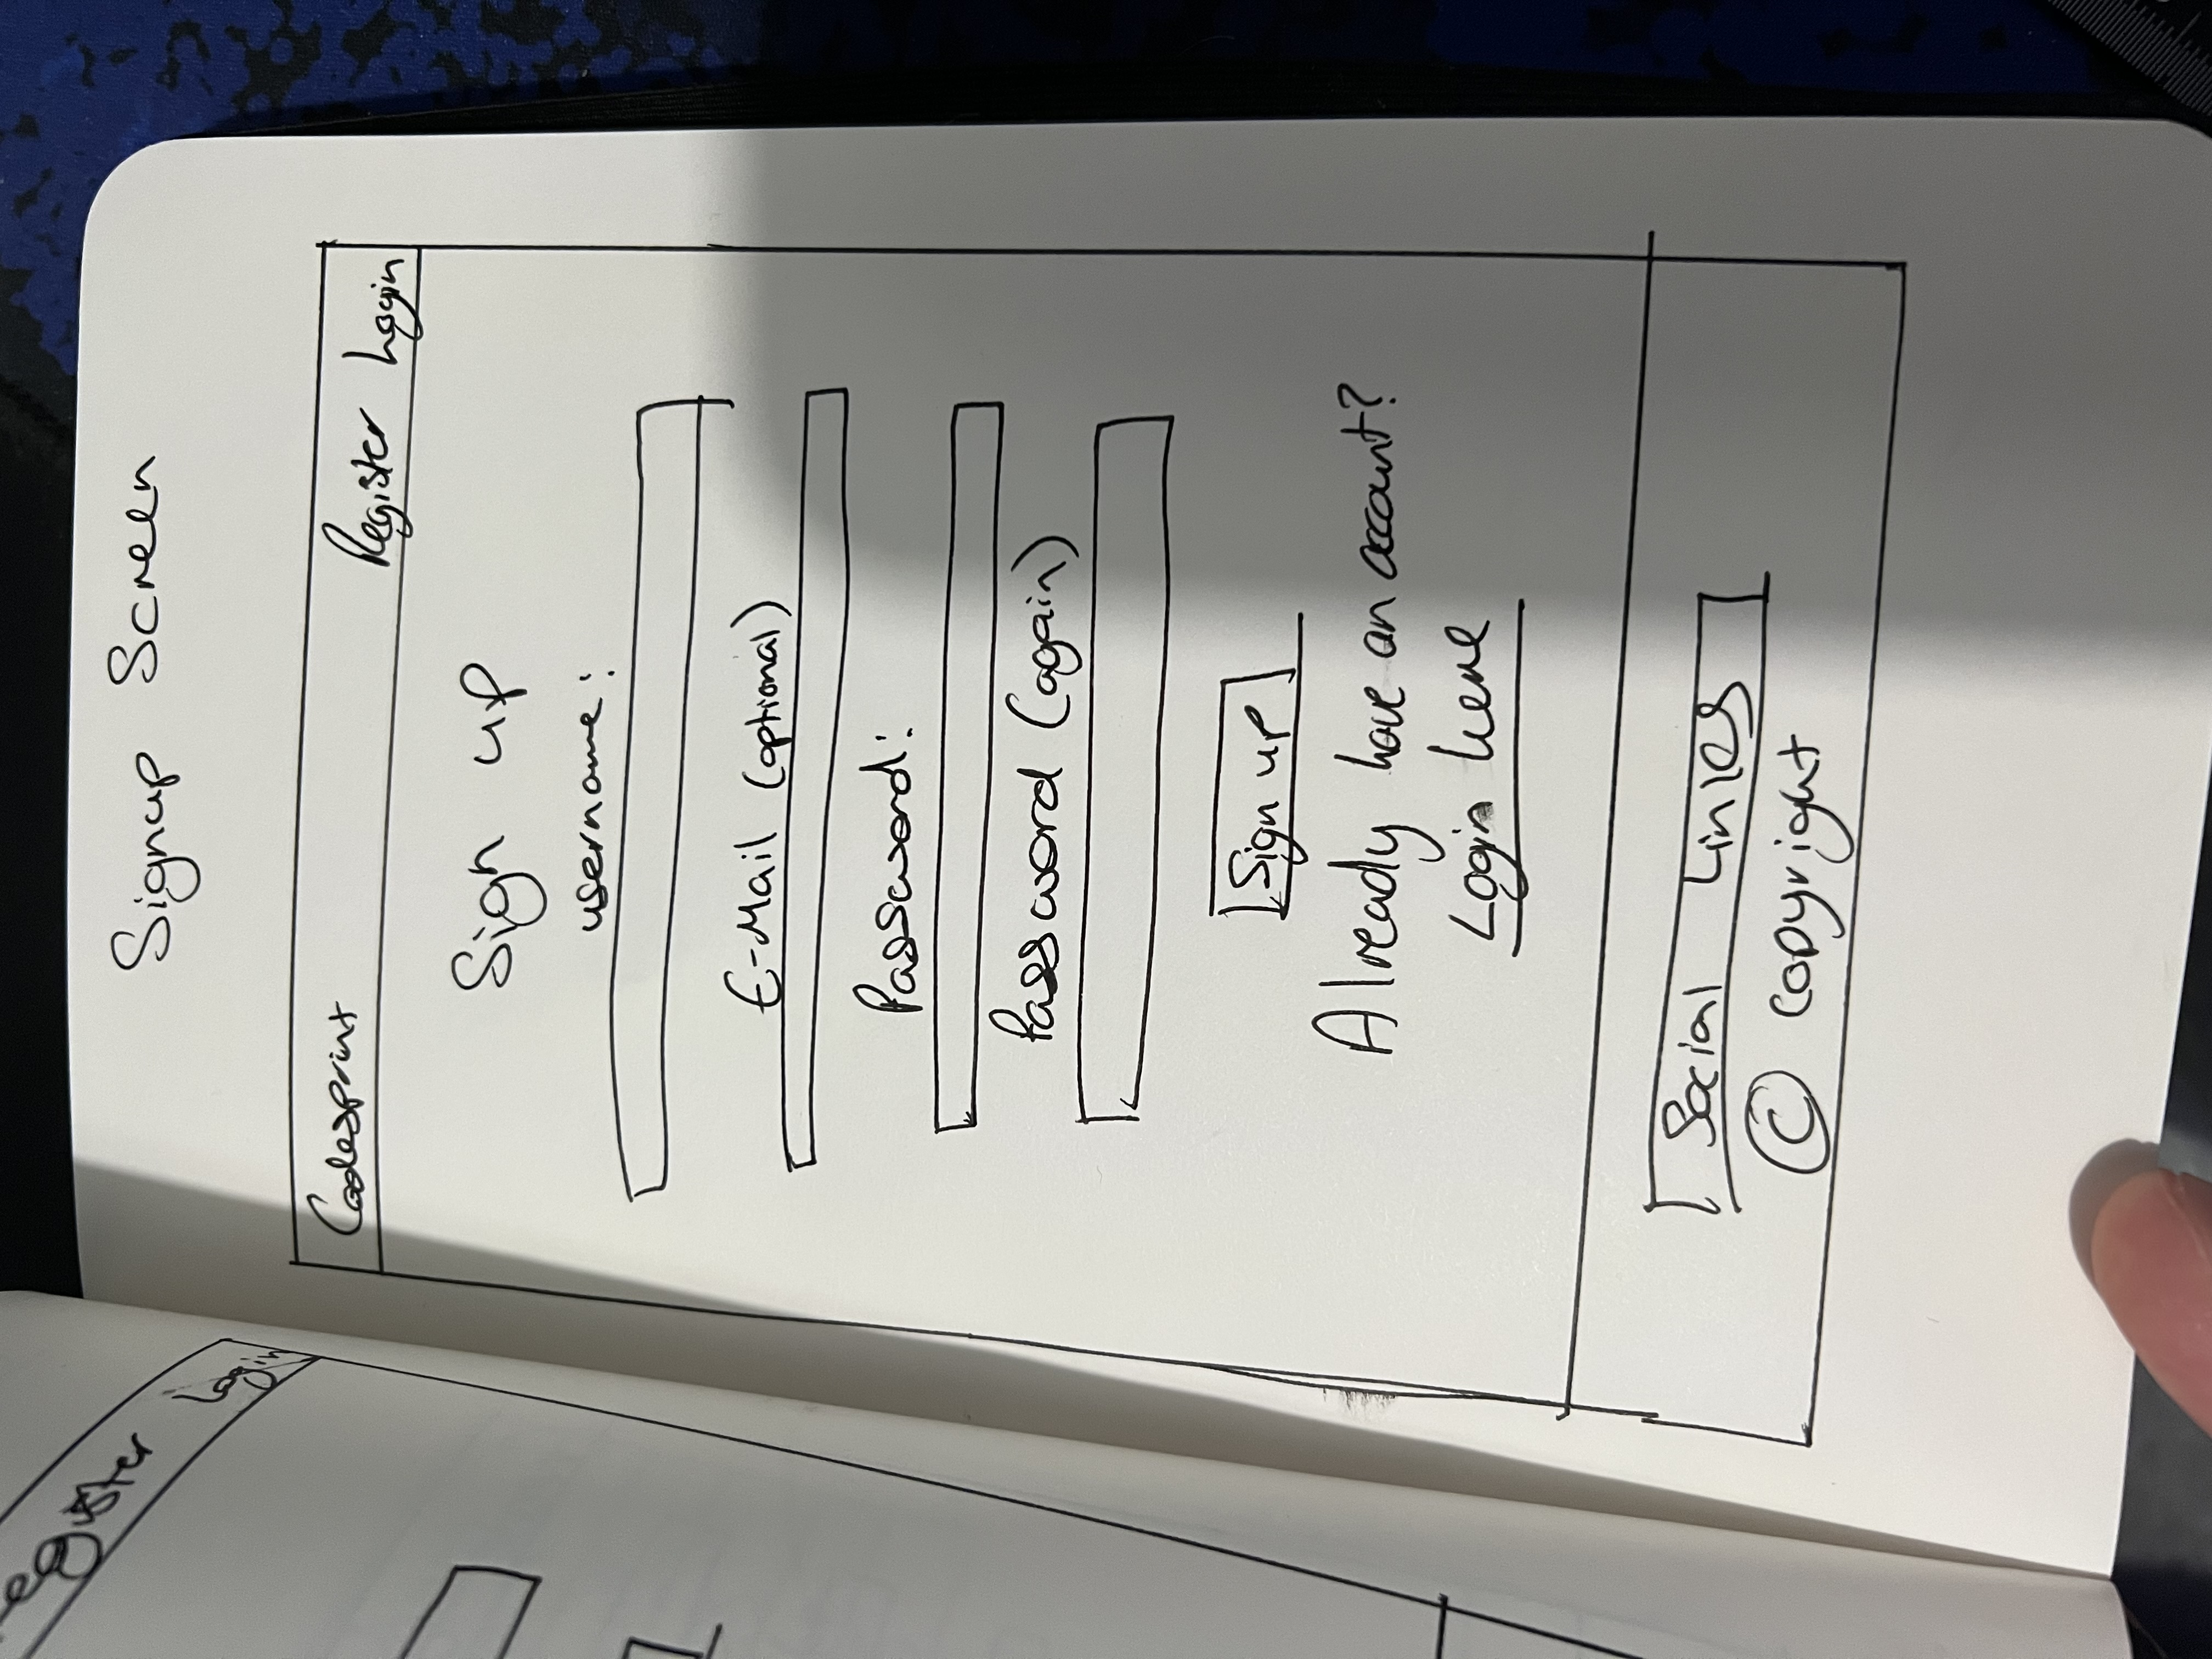 Register Login
Signup Screen
Codesprint Register Login
Sign up
username:
E-Mail (optional)
Password:
Password (again)
Sign up
Already have an account?
Login here
Social Links
© copyright